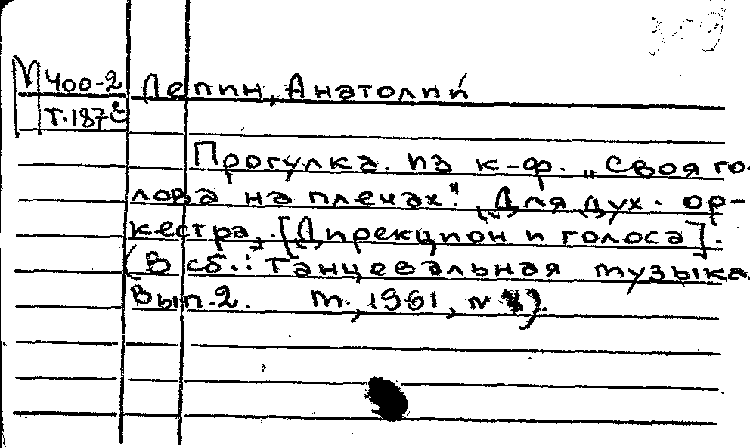 М 400-2 Лепин, Анатолий
т.187с
Прогулка. Из к-ф. „Своя го-
лова на плечах". Для дух. ор-
кестра. [Дирекцион и голоса].
(В сб.: Танцевальная музыка.
Вып. 2. М., 1961, №